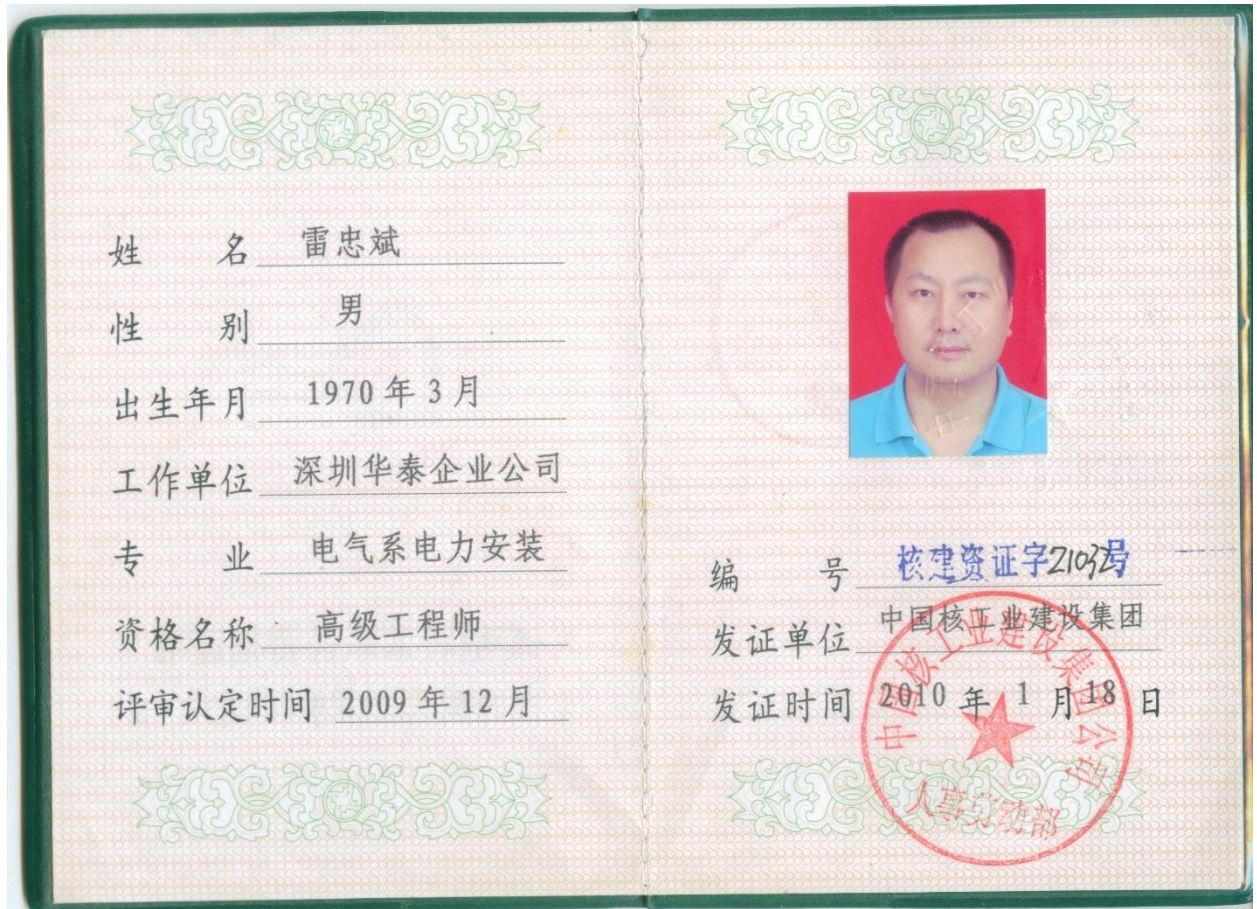 姓 名 雷忠斌
性 别 男
出生年月 1970 年 3 月
工作单位 深圳华泰企业公司
专 业 电气系电力安装
资格名称 高级工程师
评审认定时间 2009 年 12 月
编 号 核建资证字21032号
发证单位 中国核工业建设集团
发证时间 2010 年 1 月 18 日
中国核工业建设集团公司
人事劳动部